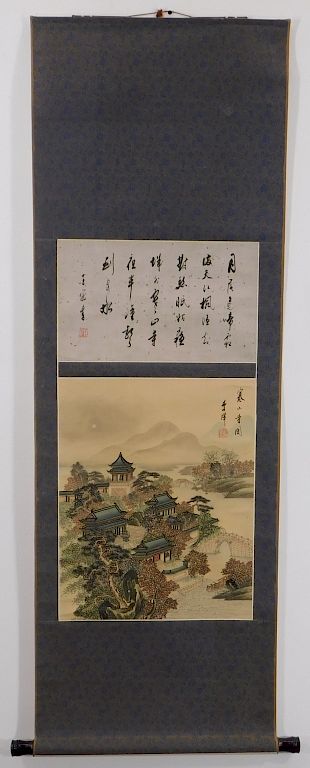 月落烏啼霜
満天江楓漁火
對愁眠姑蘇
城外寒山寺
夜半鐘聲
到客船
寒山寺図